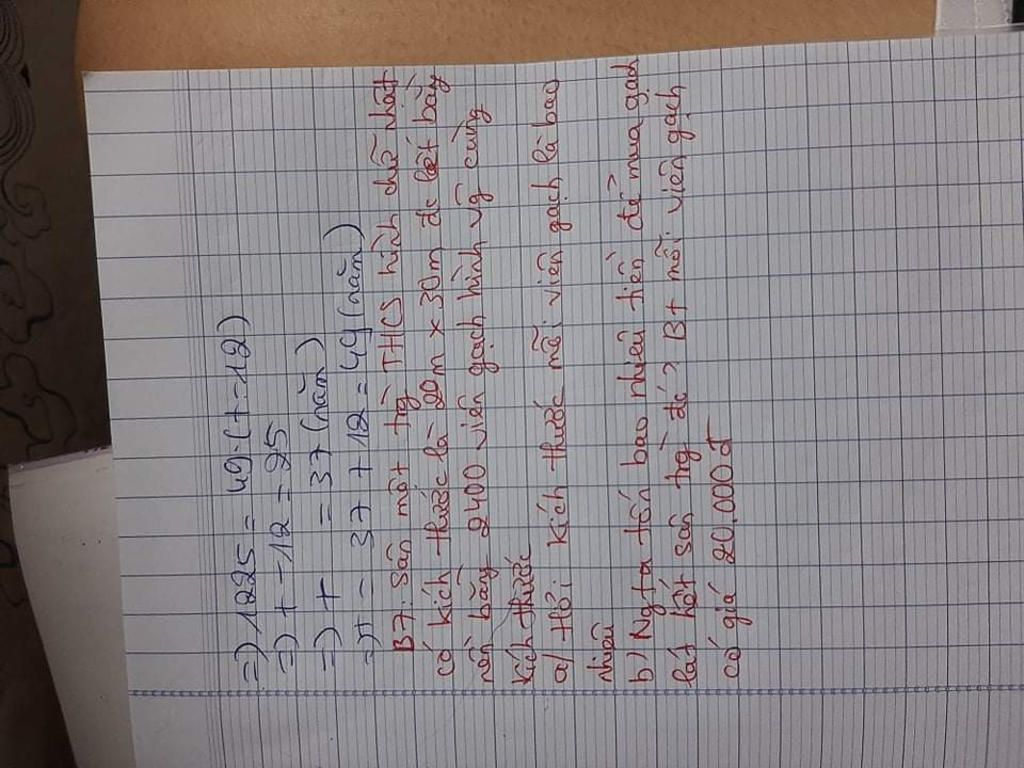 =) 1225 = 49.(t-12)
=) t-12 = 25
=) t = 37 (năm)
=) π = 37 + 12 = 49 (năm)
B7: Sân một trg THCS hình chữ nhật
có kích thước là 20m x 30m đc lát bằng
nền bằng 2400 viên gạch hình vg cùng
kích thước
a) Hỏi kích thước mỗi viên gạch là bao
nhiêu
b) Ngta tốn bao nhiêu tiền để mua gạch
lát hết sân trg đó? Bt mỗi viên gạch
có giá 20.000đ